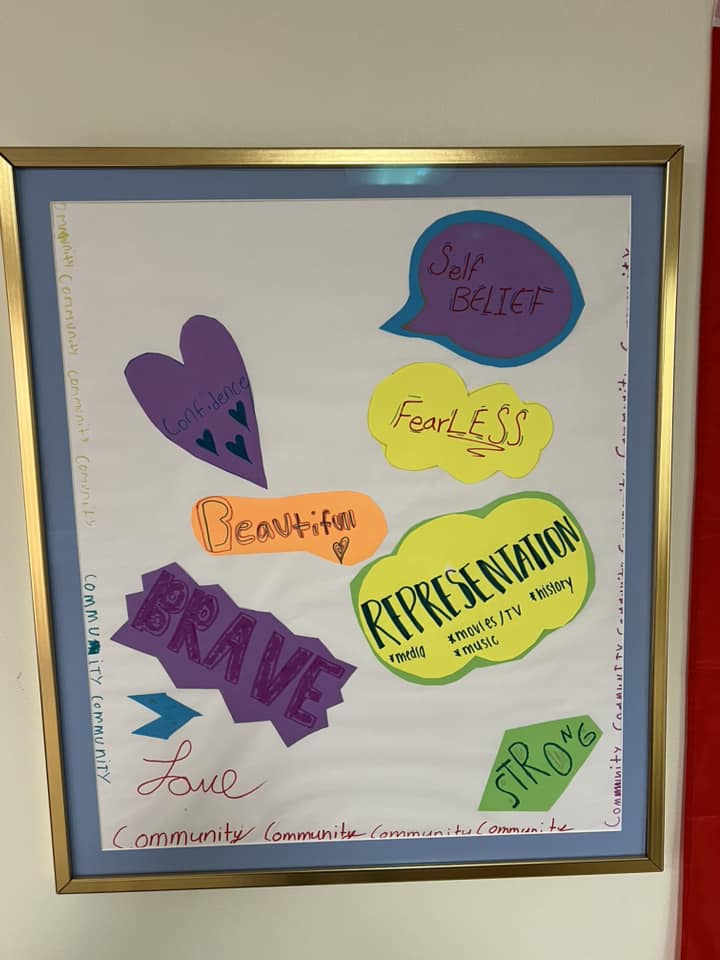 Self
BELIEF
Confidence
FearLESS
Beautifull
REPRESENTATION
*media
*movies/TV
*music
*history
BRAVE
STRONG
Love
Community Community Community Community
Community Community Community
Community Community
Community Community Community